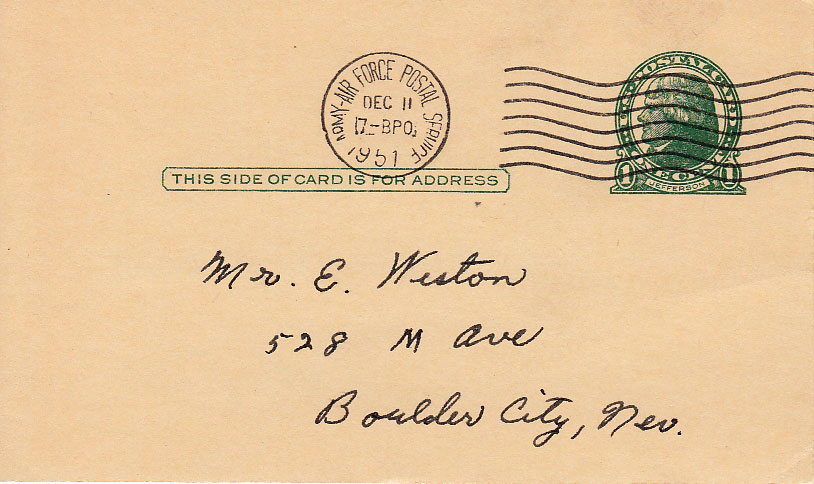 ARMY-AIR FORCE POSTAL SERVICE
DEC 11
1951
U.S. POSTAL CARD
THIS SIDE OF CARD IS FOR ADDRESS
1 JEFFERSON 1
Mr. E. Weston
528 M Ave
Boulder City, Nev.